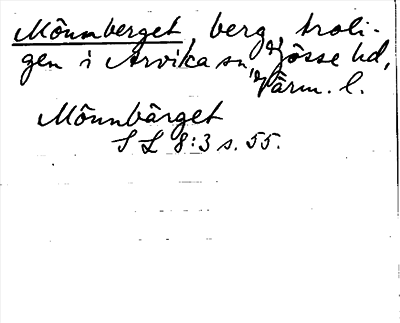 Mônnberget, berg, troli-
gen i Arvika sn, Jösse hd,
Värm. l.
Mônnbärget
S L 8:3 s. 55.